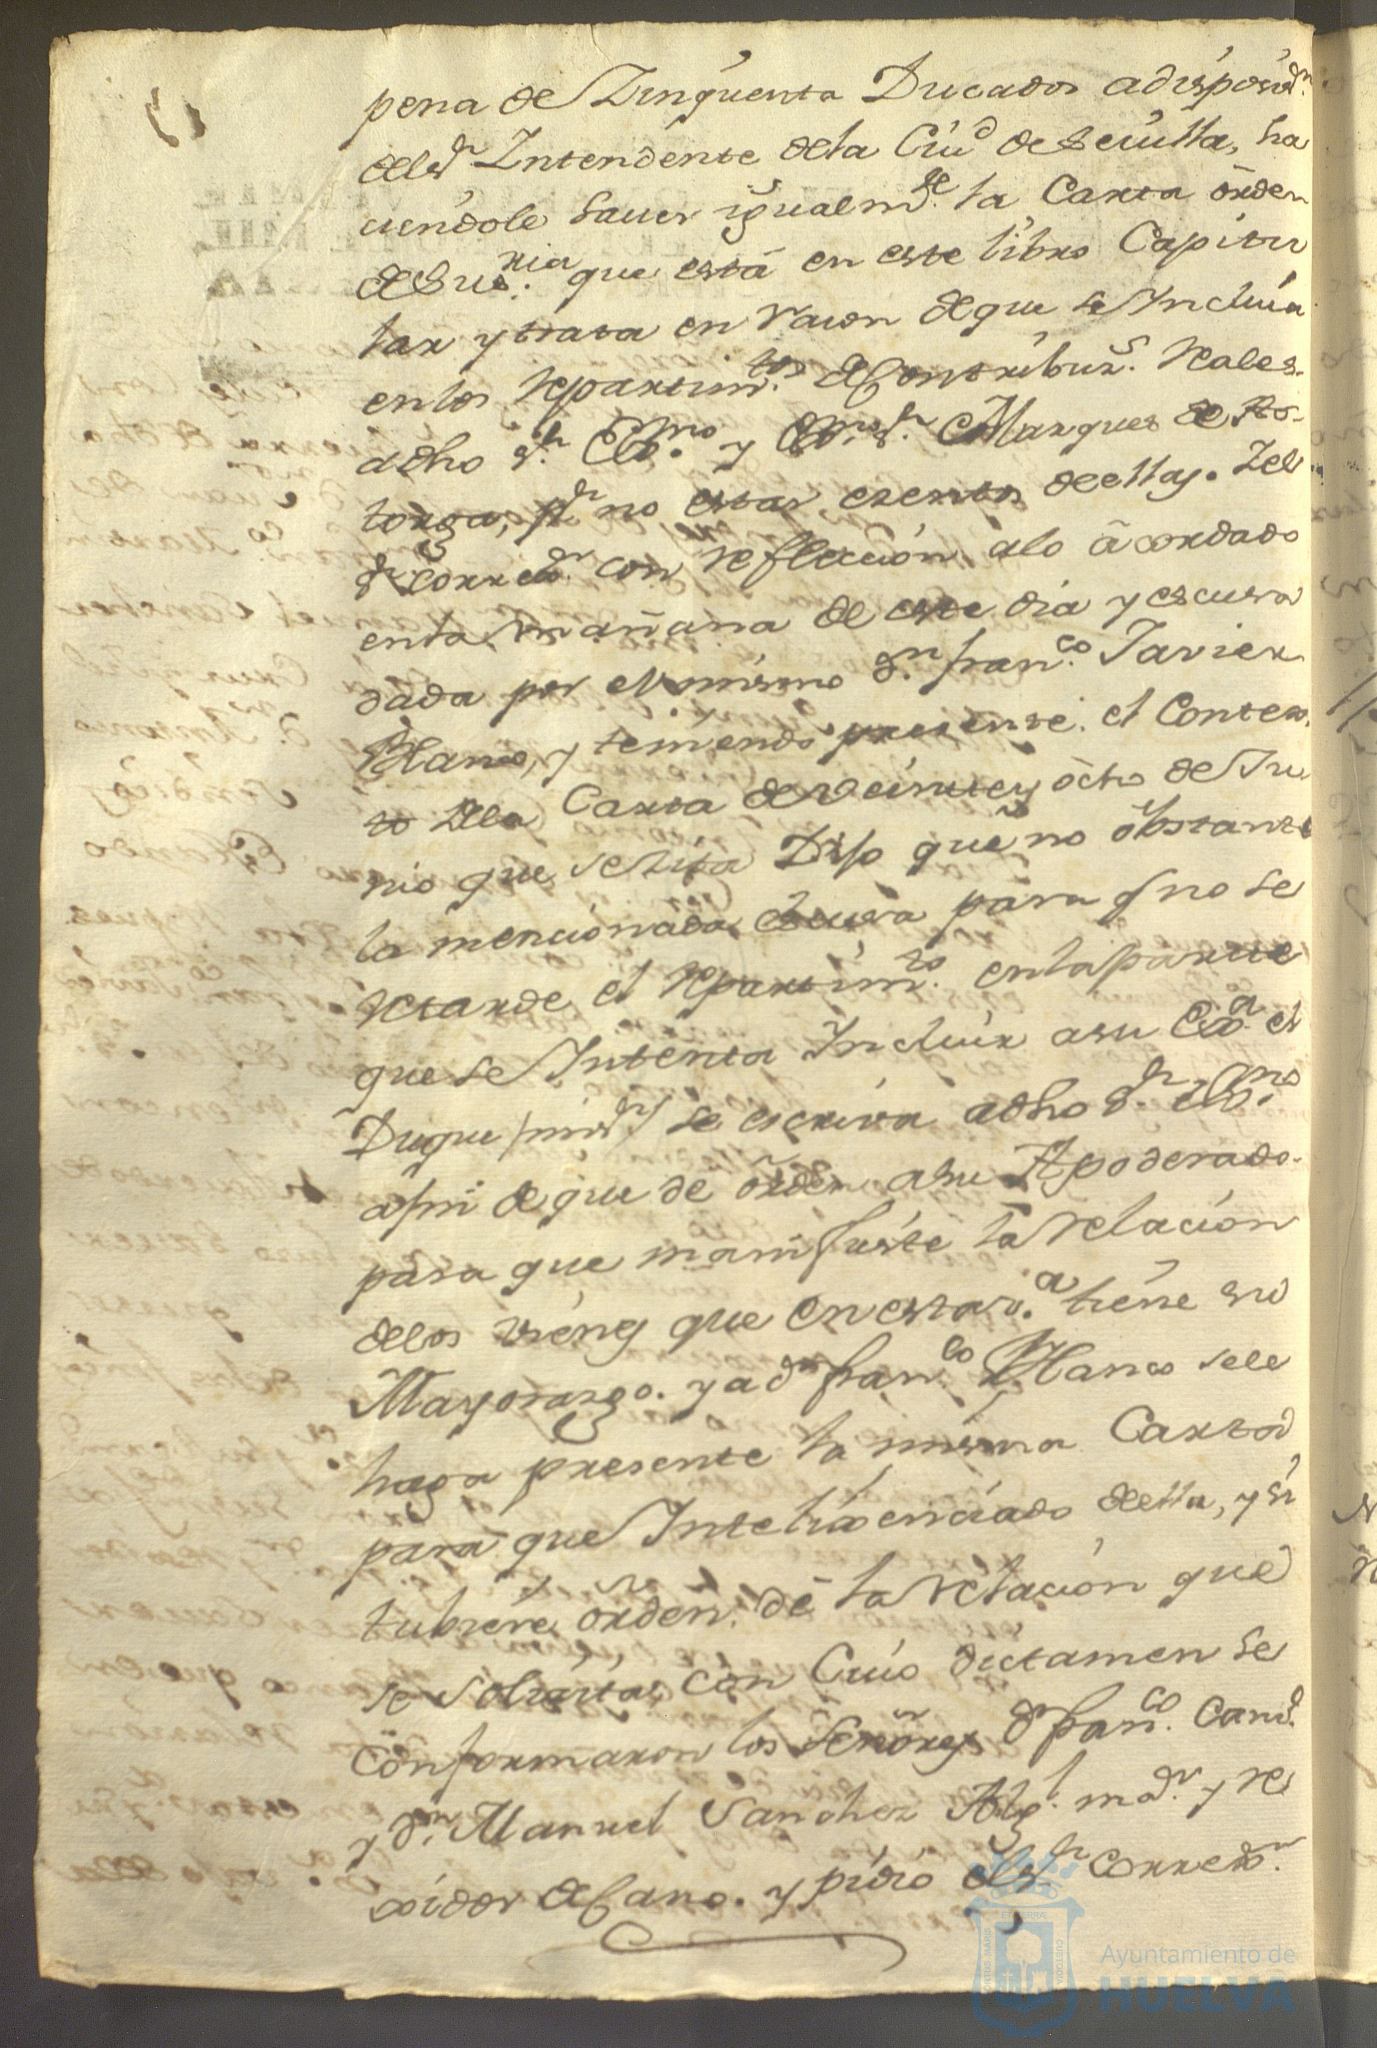 pena de Zinquenta Ducados adisposiz.n
del s.r Intendente dela Ciu.d de Sevilla, ha
ciendole saver igualm.te la Carta orden
de Sus.ria que está en este libro Capitu
lar y trata en razon de que se Incluia
en los repartim.tos de Contribuz.s Reales
adho s.r Ex.mo y Ex.mo s.r Marques de As-
torga, p.r no estar exentos de ellas. Y el
s.r Corred.r con reflección alo acordado
enla mañana de este dia y escusa
dada por el mismo d.n fran.co Javier
Blanco, y teniendo presente el Contex
to dela Carta de veinte y ocho de Ju
nio que se cita Dijo que no obstante
la mencionada escusa para q no se
retarde el repartim.to enla parte
que se Intenta Incluir a su Exa. el
Duque mi s.r se escriva adho s.r Ex.mo
afin de que dé orden asu Apoderado
para que manifieste la relacion
delos vienes que en esta v.a tiene su
Mayorazgo. y a d.n fran.co Blanco sele
haga presente la misma Carta
para que Intelixenciado de ella, y si
tubiere orden, dé la relacion que
se solicita, con Cuio dictamen se
conformaron los Señores d.n fran.co Cand.
y d.n Manuel Sanchez Alg.l m.or y re
xidor decano. y pidio el s.r Corred.r
Ayuntamiento de
HUELVA